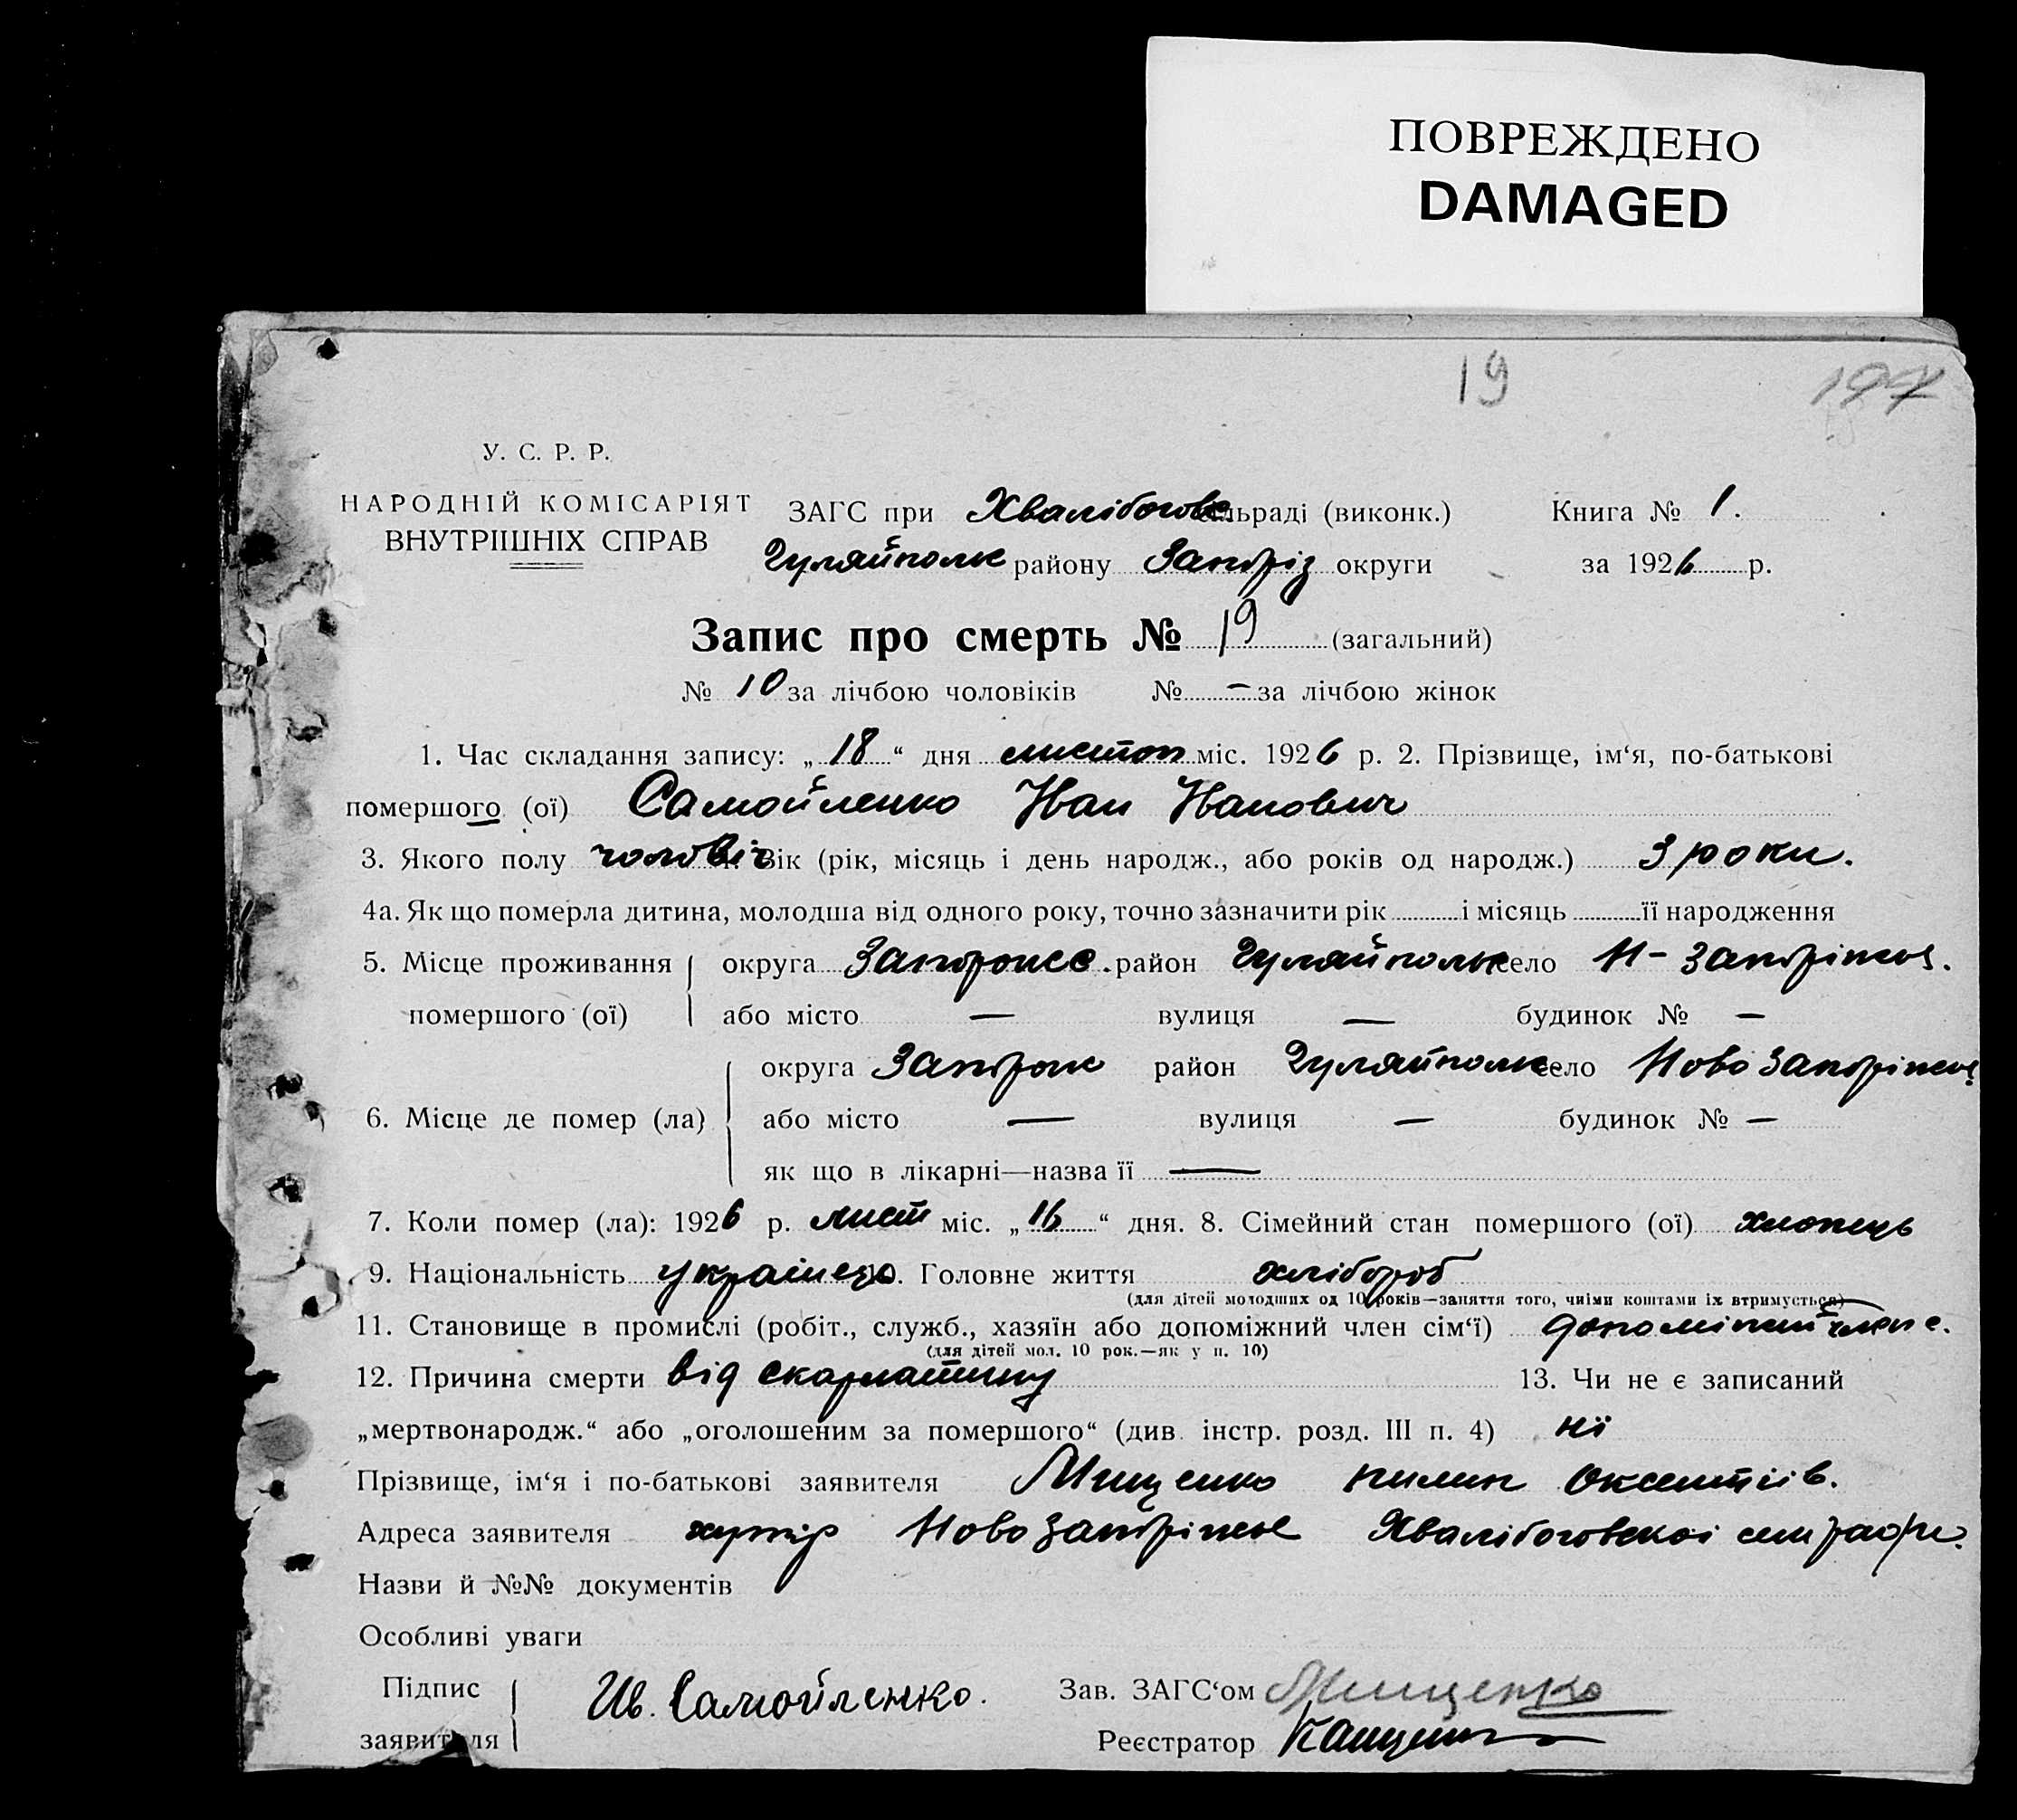 ПОВРЕЖДЕНО
DAMAGED
19
У. С. Р. Р.
НАРОДНІЙ КОМІСАРІЯТ
ВНУТРІШНІХ СПРАВ
ЗАГС при Хвалібогове сільраді (виконк.) Книга № 1.
Гуляйполк району Запоріз округи за 1926 р.
Запис про смерть № 19 (загальний)
№ 10 за лічбою чоловіків № — за лічбою жінок
1. Час складання запису: „18“ дня листоп міс. 1926 р. 2. Прізвище, ім‘я, по-батькові
помершого (ої) Самойленко Іван Іванович
3. Якого полу чоловіч 4. Вік (рік, місяць і день народж., або років од народж.) 3 роки.
4а. Як що померла дитина, молодша від одного року, точно зазначити рік і місяць її народження
5. Місце проживання округа Запорожсє. район Гуляйпольк село Н-Запоріжжя.
помершого (ої) або місто — вулиця — будинок № —
округа Запорож район Гуляйполк село Ново Запоріжжя
6. Місце де помер (ла) або місто — вулиця — будинок № —
як що в лікарні—назва її —
7. Коли помер (ла): 1926 р. лист міс. „16“ дня. 8. Сімейний стан помершого (ої) хлопець
9. Національність українець 10. Головне життя хлібороб
(для дітей молодших од 10 років—заняття того, чиїми коштами їх втримується)
11. Становище в промислі (робіт., служб., хазяїн або допоміжний член сім‘ї) допоміжний член с.
(для дітей мол. 10 рок.—як у п. 10)
12. Причина смерти від скарлатину 13. Чи не є записаний
„мертвонародж.“ або „оголошеним за помершого“ (див. інстр. розд. III п. 4) нї
Прізвище, ім‘я і по-батькові заявителя Мищенко Пилип Оксентіїв.
Адреса заявителя хутір Ново Запоріжжє Хвалібоговскої
Назви й №№ документів
Особливі уваги
Підпис заявителя Ив. Самойленко. Зав. ЗАГС‘ом Мищенко
Реєстратор